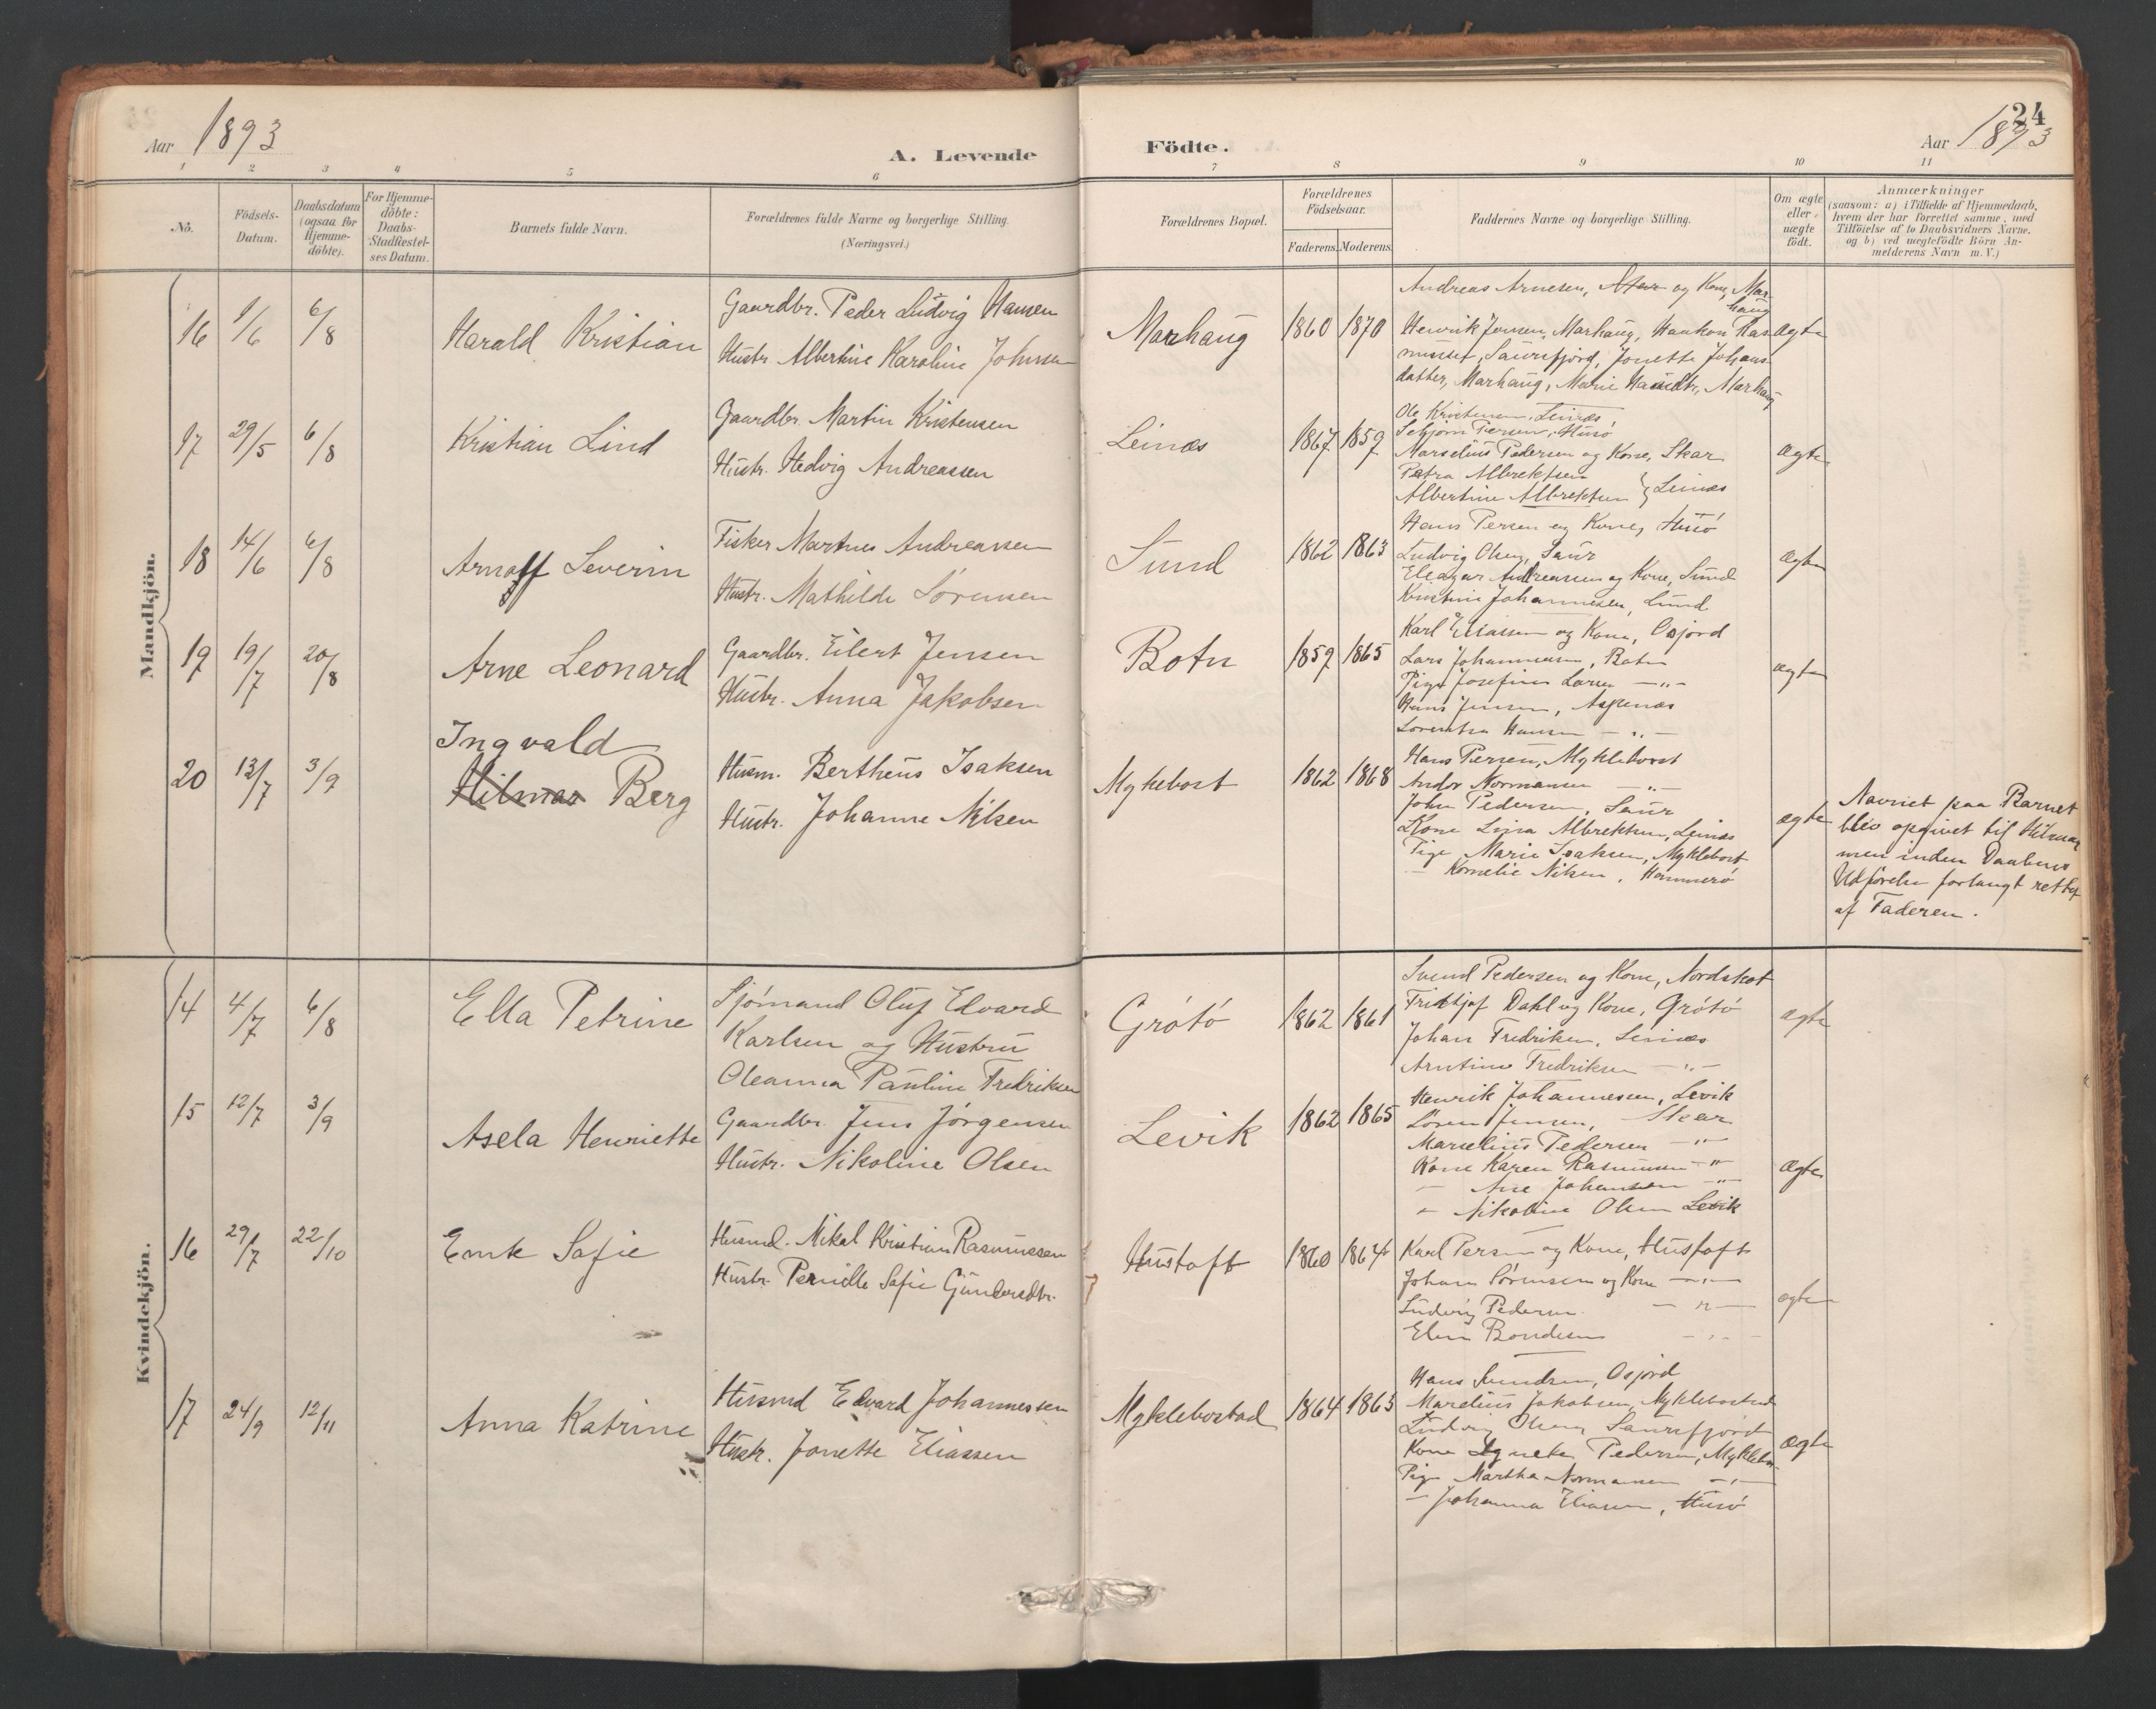 Aar 1893
A. Levende
Födte.
24
Aar 1893
1 2 3 4 5 6 7 8 9 10 11
No.
Födsels-
Datum.
Daabsdatum
(ogsaa for
Hjemme-
döbte).
For Hjemme-
döbte:
Daabs-
Stadfæstel-
ses Datum.
Barnets fulde Navn.
Forældrenes fulde Navne og borgerlige Stilling.
(Næringsvei.)
Forældrenes Bopæl.
Forældrenes
Födselsaar.
Faderens. Moderens.
Faddernes Navne og borgerlige Stilling.
Om ægte
eller
uægte
födt.
Anmærkninger
(saasom: a) i Tilfælde af Hjemmedaab,
hvem der har forrettet samme, med
Tilföielse af to Daabsvidners Navne.
og b) ved uegtefödte Börn An-
melderens Navn m. V.)
Mandkjön.
16 1/6 6/8 Harald Kristian
Gaardbr. Peder Ludvig Hansen
Hustr. Albertine Karoline Johnsen
Marhaug 1860 1870
Andreas Arnesen, og Kone, Mar-
haug
Henrik Jensen, Marhaug, Haakon Ras-
mussen, Saursfjord, Jonette Johans-
datter, Marhaug, Marie Hansdtr, Marhaug
ægte
17 29/5 6/8 Kristian Lind
Gaardbr. Martin Kristensen
Hustr. Hedvig Andreassen
Leinæs 1867 1859
Ole Kristensen, Leinæs
Persen, Husö
Marselius Pedersen og Kone, Skar
Petra Albrektsen
Albertine Albrektsen } Leinæs
ægte
18 14/6 6/8 Arnoff Severin
Fisker Martnes Andreassen
Hustr. Mathilde Sörensen
Sund 1862 1863
Hans Persen og Kone, Husö
Ludvig Olsen, Saur
Eleazar Andreassen og Kone, Sund
Kristine Johannesen, Sund
ægte
19 19/7 20/8 Arne Leonard
Gaardbr. Eilert Jensen
Hustr. Anna Jakobsen
Botn 1859 1865
Karl Eliassen og Kone, Osjord
Lars Johannesen, Botn
Pige Josefine Larsen —"—
Hans Jensen, Aspenæs
Lorentza Hansen —"—
ægte
20 13/7 3/9 Ingvald
Hilmar Berg
Husm. Bertheus Isaksen
Hustr. Johanne Nilsen
Myklebost 1862 1868
Hans Persen, Myklebost
Andor Normansen —"—
John Pedersen, Saur
Kone Lina Albrektsen, Leinæs
Pige Marie Isaksen, Myklebost
— Kornelie Nilsen, Hammerö
ægte
Navnet paa Barnet
blev opgivet til Hilmar
men inden Daabens
Udförelse forlangt rettet
af Faderen.
Kvindekjön.
14 4/7 6/8 Ella Petrine
Sjömand Oluf Edvard
Karlsen og Hustru
Oleanna Pauline Fredriksen
Grötö 1862 1861
Svend Pedersen og Kone, Nordskot
Fridtjof Dahl og Kone, Grötö
Johan Fredriksen, Leinæs
Arntine Fredriksen —"—
ægte
15 12/7 3/9 Asela Henriette
Gaardbr. Jens Jörgensen
Hustr. Nikoline Olsen
Levik 1862 1865
Henrik Johannesen, Levik
Sören Jensen, Skar
Marselius Pedersen —"—
Kone Karen Rasmussen —"—
— Ane Johansen —"—
— Nikoline Olsen Levik
ægte
16 29/7 22/10 Enok Sofie
Husmd. Mikal Kristian Rasmussen
Hustr. Pernille Sofie Gundersdtr.
Hustoft 1860 1864
Karl Persen og Kone, Hustoft
Johan Sörensen og Kone —"—
Ludvig Pedersen —"—
Elen Bondesen —"—
ægte
17 24/9 12/11 Anna Katrine
Husmd Edvard Johannessen
Hustr. Jonette Eliassen
Myklebostad 1864 1863
Hans Osjord
Marelius Jakobsen, Myklebostad
Ludvig Olsen, Saursfjord
Kone Pedersen, Myklebo
Pige Martha Normansen —"—
— Johanna Eliasen, Husö
ægte